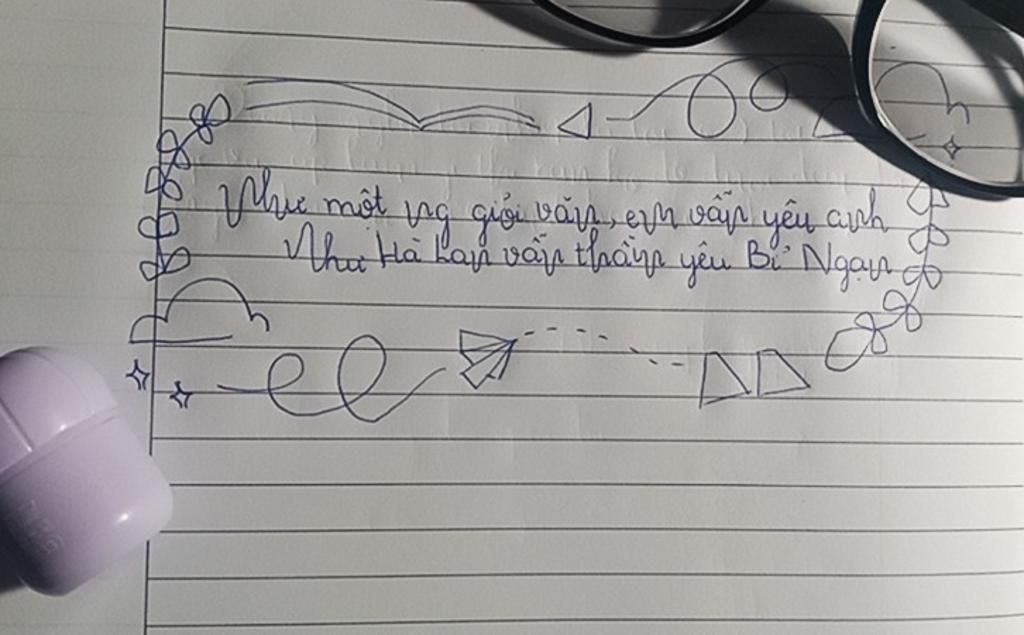 Như một ng giỏi văn, em vẫn yêu anh
Như Hà Lan vẫn thầm yêu Bỉ Ngạn